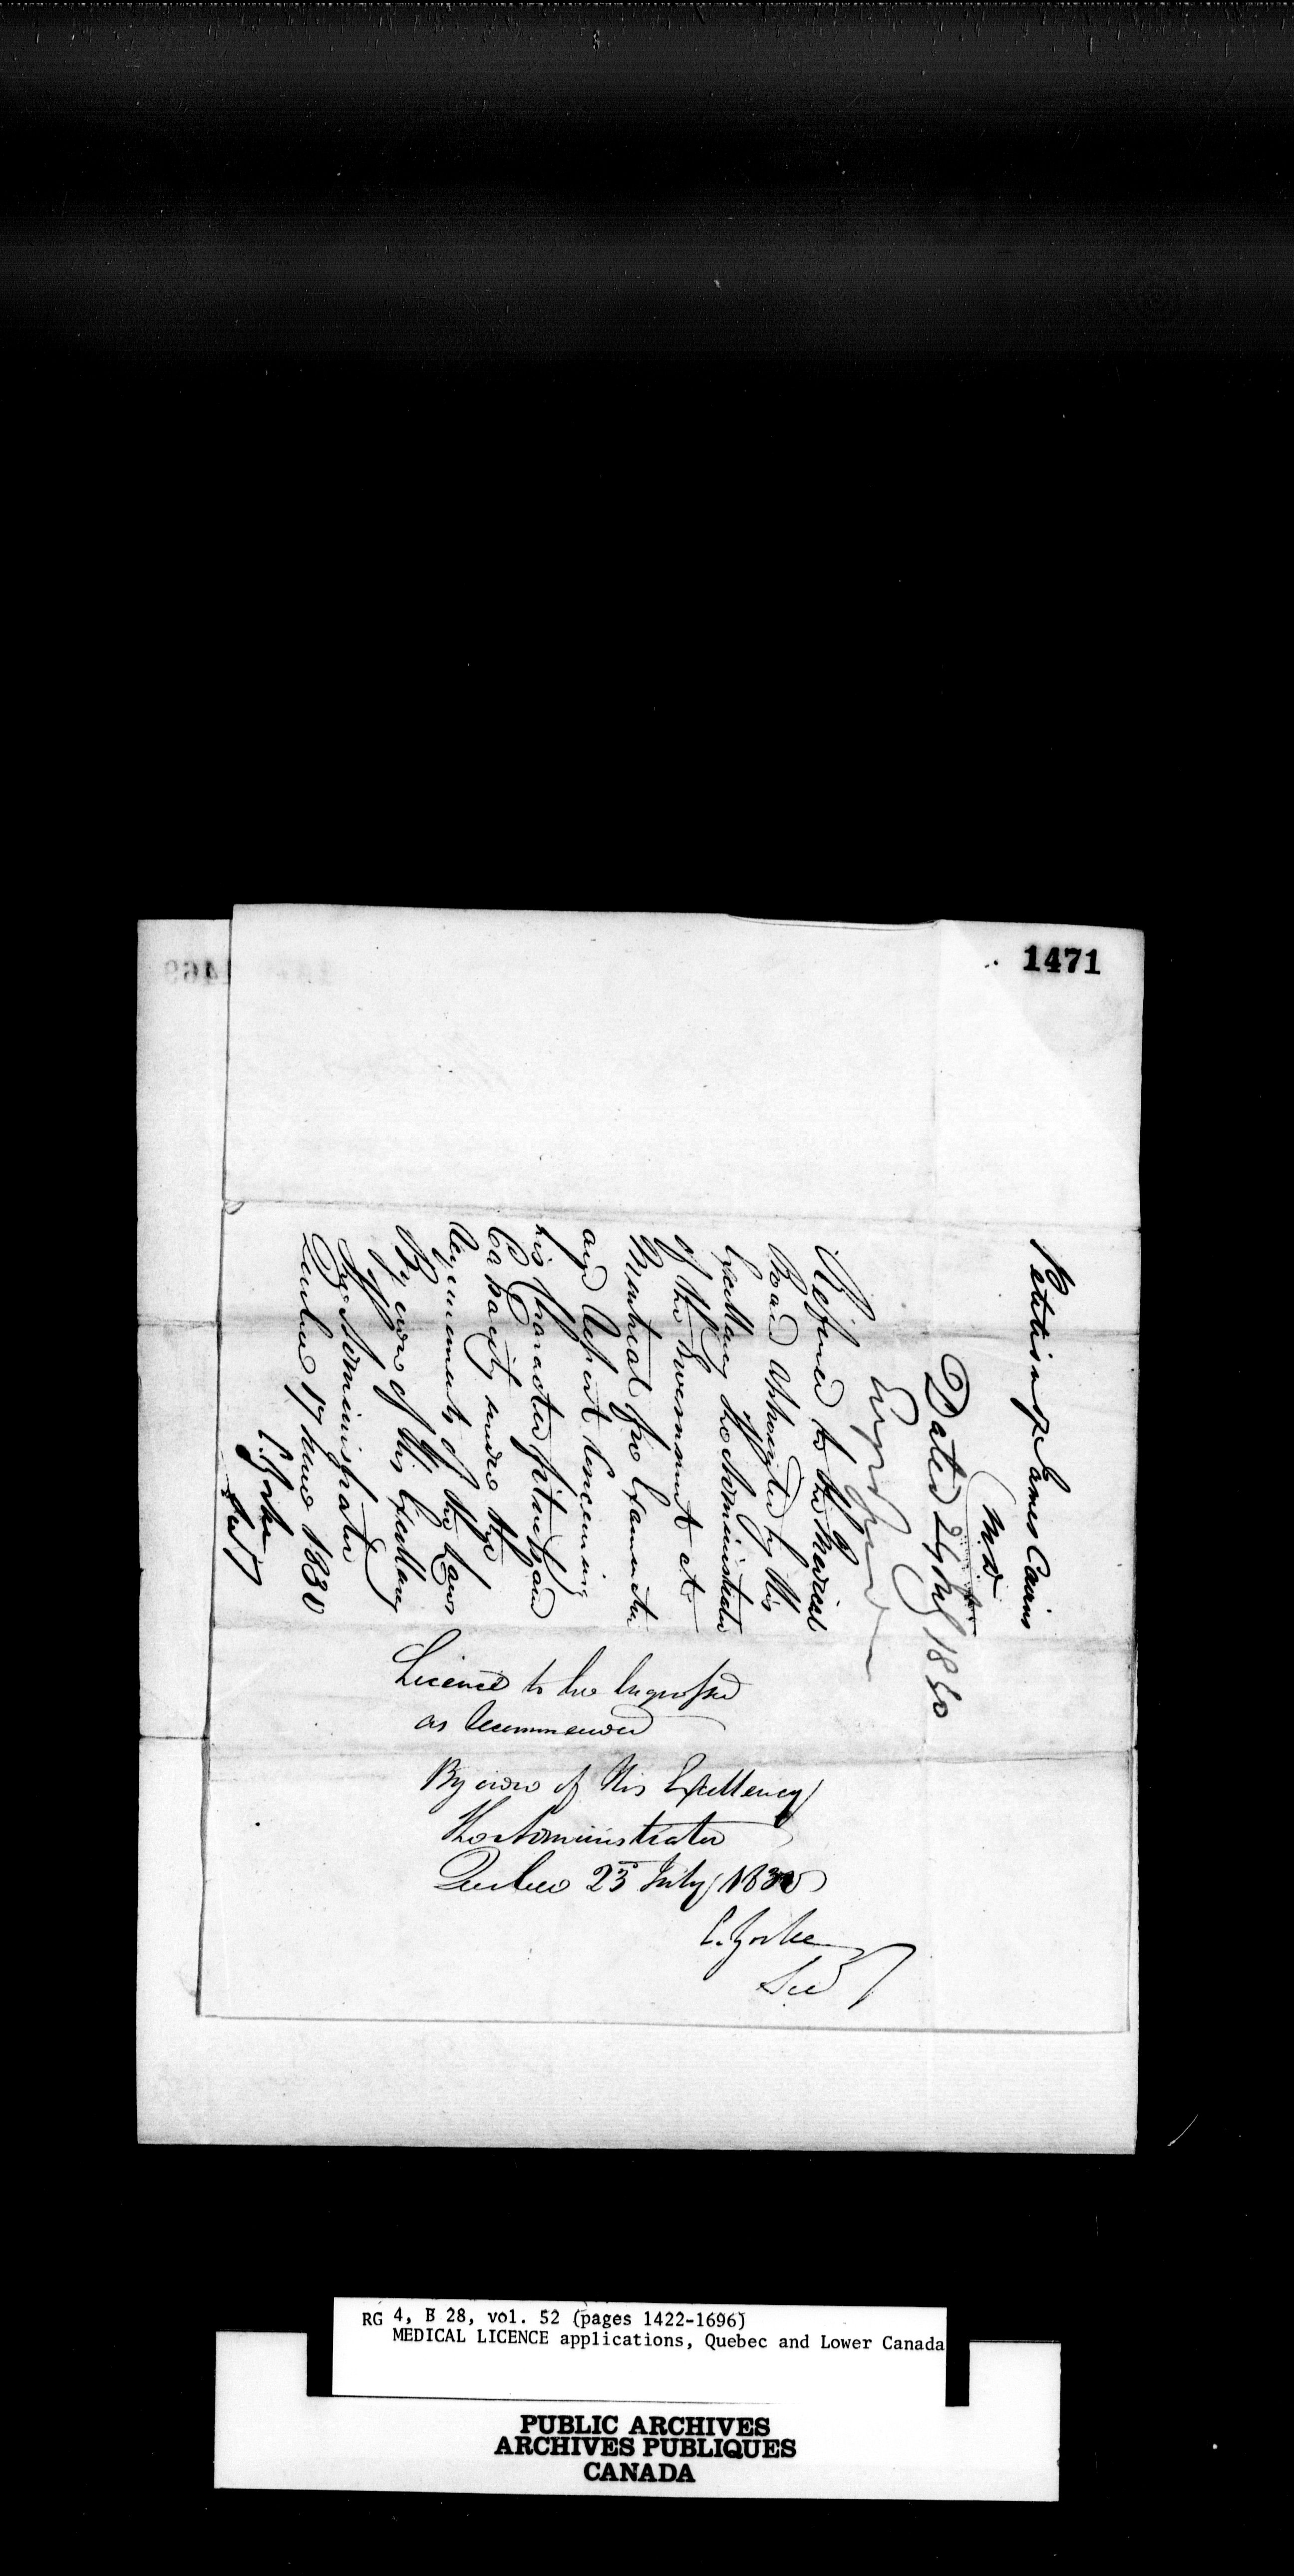 1471
Petition of James Cairns
M.D
Dated 29 July 1830
Engrossed
Referred to the Medical
Board appointed by His
Excellency the Administrator
of the Government at
Montreal for Examination
and Report concerning
his Character fitness and
Capacity under the
requirements of the Laws
By order of His Excellency
The Administrator
Quebec 17 June 1830
C. Yorke
Licence to be Engrossed
as recommended
By order of His Excellency
The Administrator
Quebec 23 July 1830
C. Yorke
Sec
RG 4, B 28, vol. 52 (pages 1422-1696)
MEDICAL LICENCE applications, Quebec and Lower Canada
PUBLIC ARCHIVES
ARCHIVES PUBLIQUES
CANADA